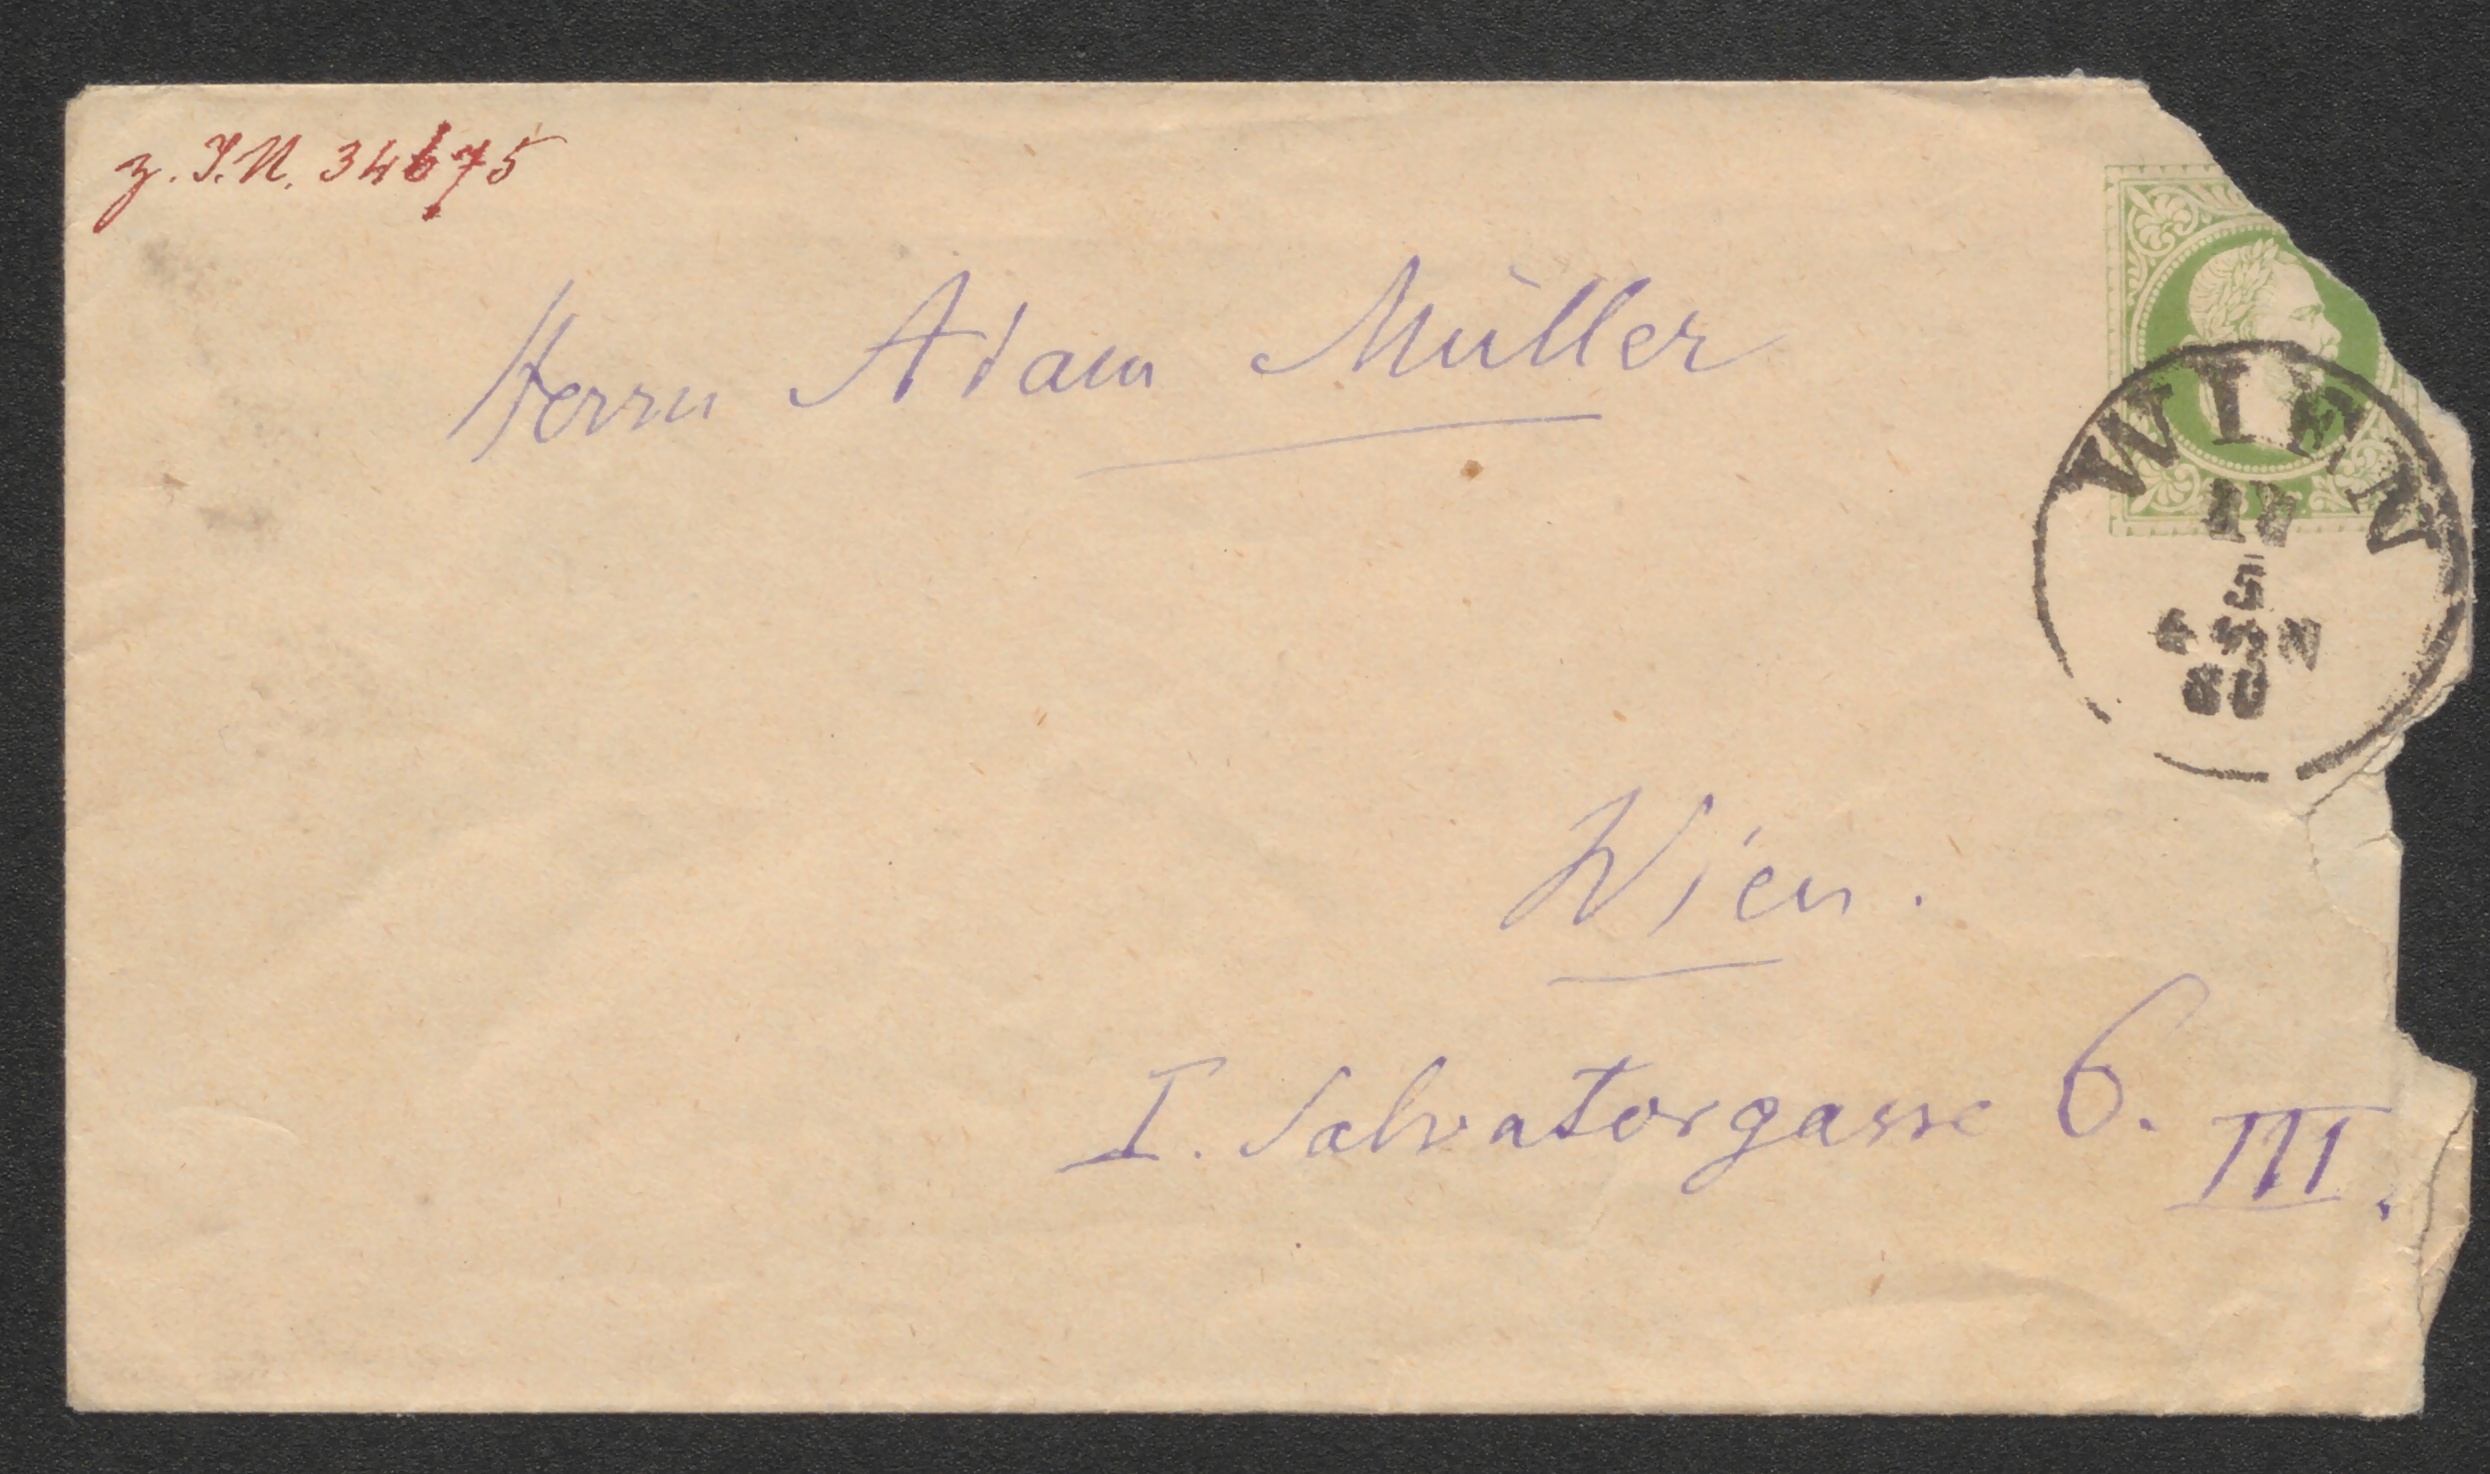 z. I.N. 34675
Herrn Adam Müller
WIEN
5
80
Wien.
I. Salvatorgasse 6.
III.